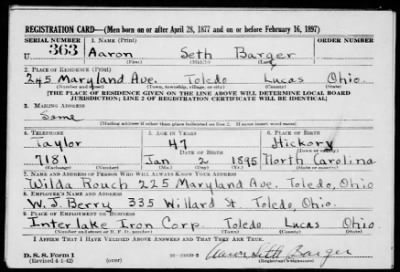 REGISTRATION CARD—(Men born on or after April 28, 1877 and on or before February 16, 1897)
SERIAL NUMBER 1. NAME (Print) ORDER NUMBER
U 363 Aaron Seth Barger
(First) (Middle) (Last)
2. PLACE OF RESIDENCE (Print)
245 Maryland Ave. Toledo Lucas Ohio.
(Number and street) (Town, township, village, or city) (County) (State)
[THE PLACE OF RESIDENCE GIVEN ON THE LINE ABOVE WILL DETERMINE LOCAL BOARD
JURISDICTION; LINE 2 OF REGISTRATION CERTIFICATE WILL BE IDENTICAL]
3. MAILING ADDRESS
Same
[Mailing address if other than place indicated on line 2. If same insert word same]
4. TELEPHONE 5. AGE IN YEARS 6. PLACE OF BIRTH
Taylor 47 Hickory
DATE OF BIRTH
7181 Jan 2 1895 North Carolina
7. NAME AND ADDRESS OF PERSON WHO WILL ALWAYS KNOW YOUR ADDRESS
Wilda Rouch 225 Maryland Ave. Toledo, Ohio
8. EMPLOYER'S NAME AND ADDRESS
W. J. Berry 335 Willard St. Toledo, Ohio.
9. PLACE OF EMPLOYMENT OR BUSINESS
Interlake Iron Corp. Toledo Lucas Ohio
(Number and street or R. F. D. number) (Town) (County) (State)
I AFFIRM THAT I HAVE VERIFIED ABOVE ANSWERS AND THAT THEY ARE TRUE.
D. S. S. Form 1
(Revised 4-1-42) (over) Aaron Seth Barger